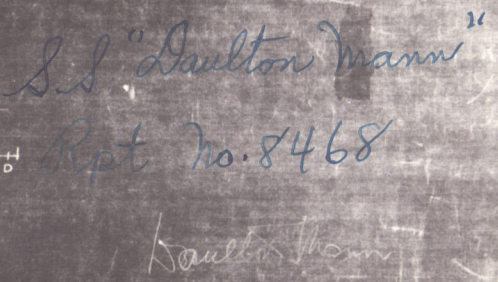 S.S. "Daulton Mann"
Rpt No. 8468
Daulton Mann